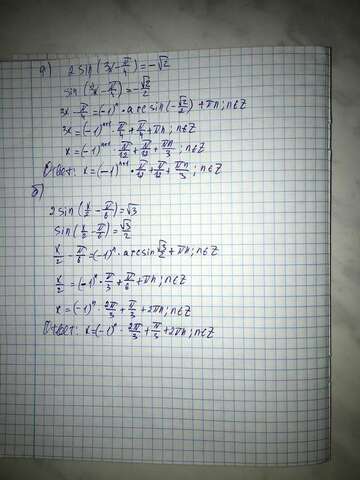 а) 2 sin (3x - π/4) = -√2
sin (3x - π/4) = -√2/2
3x - π/4 = (-1)ⁿ · arcsin(-√2/2) + πn; n∈Z
3x = (-1)ⁿ⁺¹ · π/4 + π/4 + πn; n∈Z
x = (-1)ⁿ⁺¹ · π/12 + π/12 + πn/3; n∈Z
Ответ: x = (-1)ⁿ⁺¹ · π/12 + π/12 + πn/3; n∈Z
б)
2 sin (x/2 - π/6) = √3
sin (x/2 - π/6) = √3/2
x/2 - π/6 = (-1)ⁿ · arcsin √3/2 + πn; n∈Z
x/2 = (-1)ⁿ · π/3 + π/6 + πn; n∈Z
x = (-1)ⁿ · 2π/3 + π/3 + 2πn; n∈Z
Ответ: x = (-1)ⁿ · 2π/3 + π/3 + 2πn; n∈Z